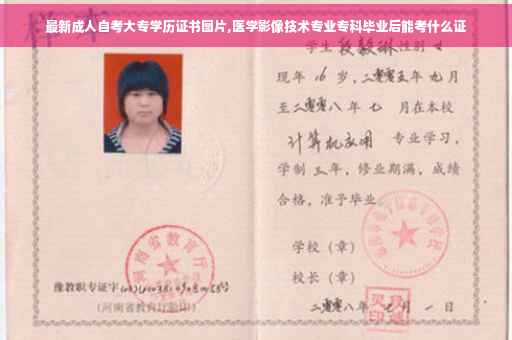 最新成人自考大专学历证书图片,医学影像技术专业专科毕业后能考什么证
学生 段毅琳 性别 女
现年 16 岁,二零零五年 九月
至二零零八年 七 月在本校
计算机应用 专业学习,
学制 三年,修业期满,成绩
合格,准予毕业
学校(章)
校长(章)
二零零八年 七 月 一 日
河南省教育厅
豫教职专证字
(河南省教育厅验印)